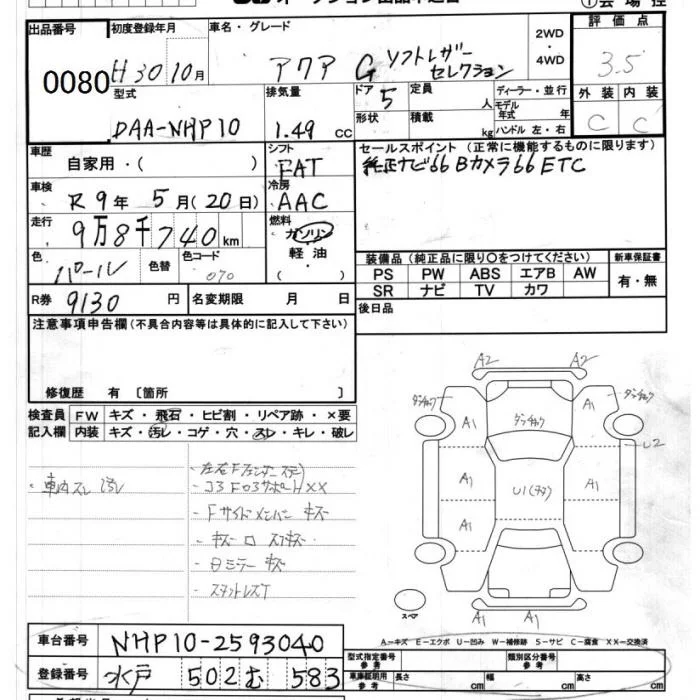 出品番号 0080
初度登録年月 H30 10月
車名・グレード アクア G ソフトレザーセレクション
2WD・4WD
評価点 3.5
型式 DAA-NHP10
排気量 1.49 cc
ドア 5
定員 人
形状
積載 kg
ディーラー・並行
モデル年式 年
ハンドル 左・右
外装 C
内装 C
車歴 自家用・( )
シフト FAT
セールスポイント (正常に機能するものに限ります)
純正ナビ66 Bカメラ66 ETC
車検 R9年 5月(20日)
冷房 AAC
走行 9万8千740km
燃料 ガソリン 軽油・( )
色 パール 色替 色コード 070
装備品 (純正品に限り○をつけてください)
新車保証書 有・無
PS PW ABS エアB AW
SR ナビ TV カワ
R券 9130 円
名変期限 月 日
後日品
注意事項申告欄(不具合内容等は具体的に記入して下さい)
修復歴 有 〔箇所 〕
検査員記入欄
FW キズ・飛石・ヒビ割・リペア跡・×要
内装 キズ・汚レ・コゲ・穴・スレ・キレ・破レ
・車内スレ 汚レ
・コ3 F03サポートXX
・Fサイドメンバー キズ
・キズ ロ スアキズ
・日ミラー キズ
・スタットレスT
A2 A2
タッチック タッチック タッチック
A1 A1 U2
A1 U1(チタ) A1
A1 A1
A1 A1
スペア
A-キズ E-エクボ U-凹み W-補修跡 S-サビ C-腐食 XX-交換済
車台番号 NHP10-2593040
登録番号 水戸 502 む 583
型式指定番号参考
類別区分番号参考
車庫証明用参考 長さ cm 幅 cm 高さ cm